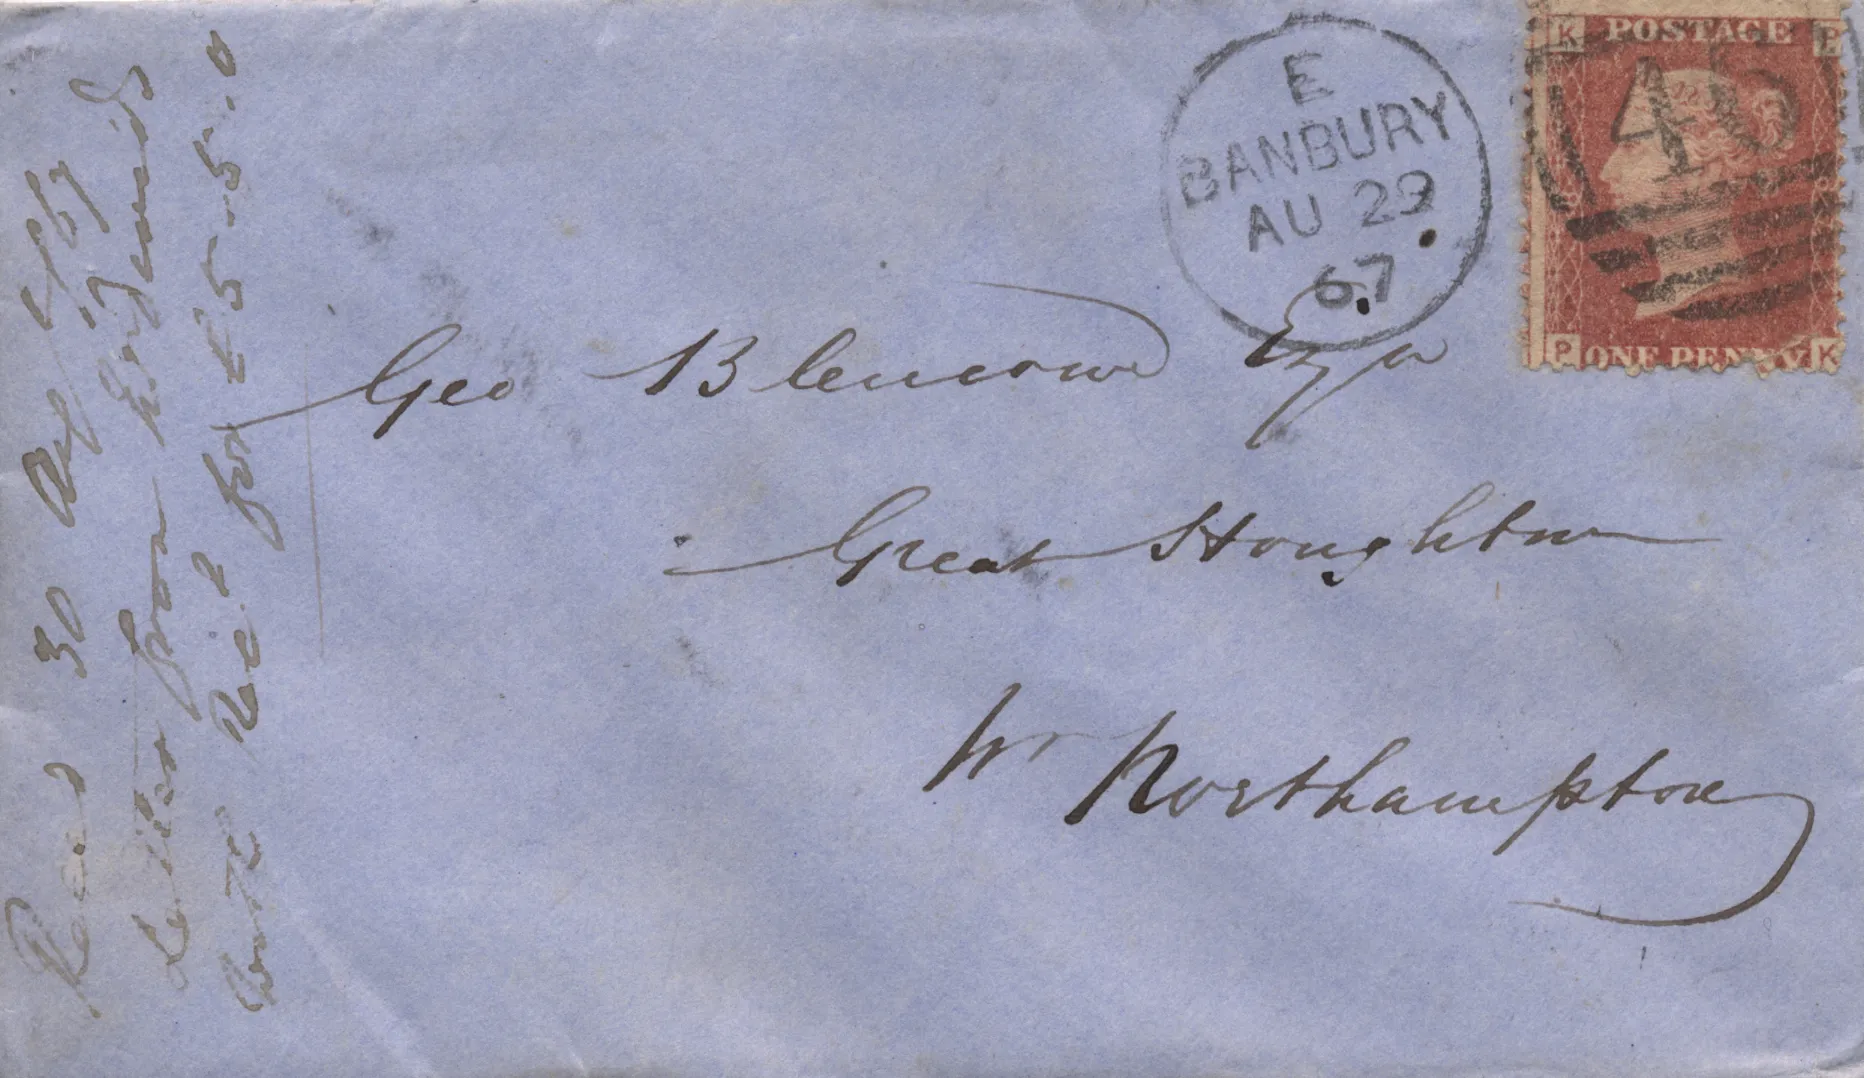 E
BANBURY
AU 29
67
K POSTAGE P
45
P ONE PENNY K
Geo Blencowe Esqr
Great Houghton
Nr Northampton
Recd 30 Aug /67
letter from
Rect for £5-5-0